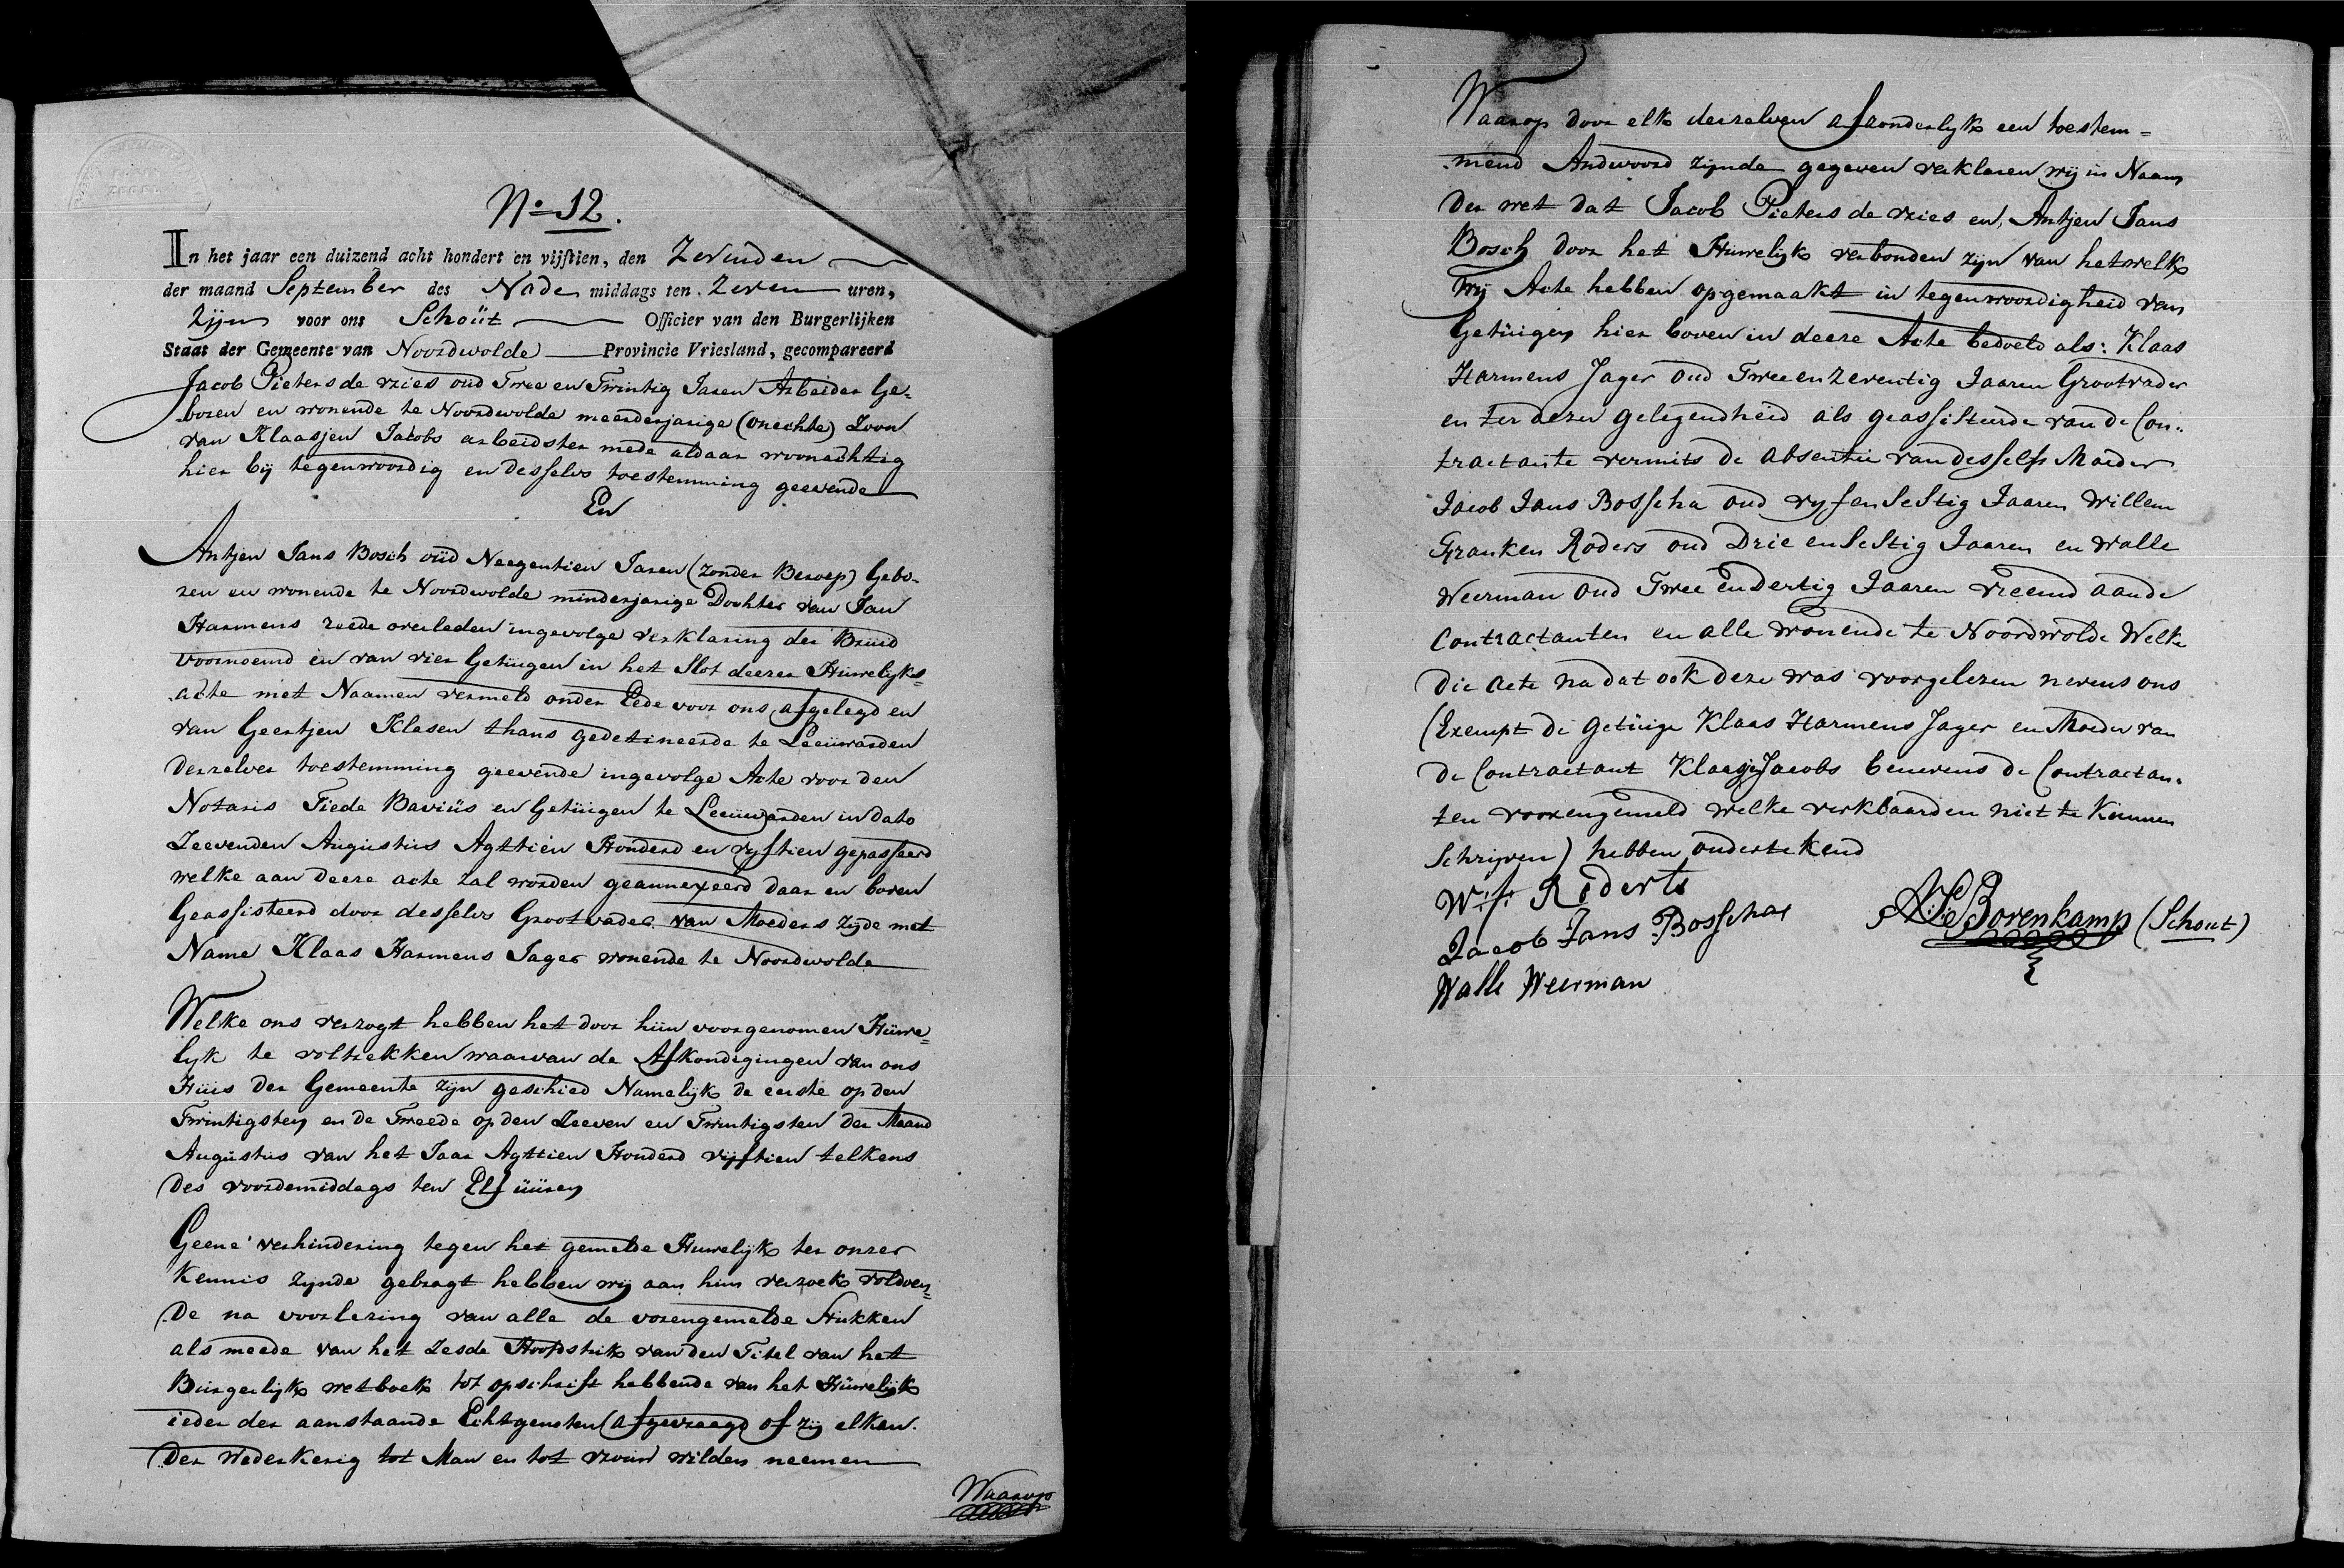 No 12.
In het jaar een duizend acht hondert en vijftien, den Zevenden
der maand September des Nade middags ten Zeven uren,
Zijn voor ons Schoüt Officier van den Burgerlijken
Staat der Gemeente van Noordwolde Provincie Vriesland, gecompareerd
Jacob Pieters de vries oud Twee en Twintig Jaren Arbeider Ge-
boren en wonende te Noordwolde meerderjarige (onechte) Zoon
van Klaasjen Jacobs arbeidster mede aldaar woonachtig
hier bij tegenwoordig en desselvs toestemming geevende
En
Antjen Jans Bosch oüd Neegentien Jaren (zonder Beroep) Gebo-
ren en wonende te Noordwolde minderjarige Dochter van Jan
Harmens reede overleden ingevolge verklaring der Bruid
voornoemd en van vier Getuigen in het Slot deezer Huwelijks=
acte met Naamen vermeld onder Eede voor ons afgelegd en
van Geertjen Klasen thans gedetineerde te Leeüwarden
derzelver toestemming geevende ingevolge Acte voor den
Notaris Tiede Baviüs en Getüigen te Leeüwarden in dato
Zeevenden Augustus Agttien Honderd en vyftien gepasseerd
welke aan deeze acte zal worden geannexeerd daar en boven
Geassisteerd door desselvs Grootvader van Moeders zijde met
Name Klaas Harmens Jager wonende te Noordwolde
Welke ons verzogt hebben het door hün voorgenomen Hüwe=
lyk te voltrekken waarvan de Afkondigingen van ons
Hüis der Gemeente zijn geschied Namelijk de eerste op den
Twintigsten en de Tweede op den Zeeven en Twintigsten der Maand
Augustus van het Jaar Agttien Honderd vijftien telkens
des voordemiddags ten Elf üüren
Geene verhindering tegen het gemelde Huwelijk ter onzer
Kennis zijnde gebragt hebben wij aan hun verzoek voldoen=
de na voorlezing van alle de vorengemelde Stukken
als meede van het zesde Hoofdstuk van den Titel van het
Burgerlijk wetboek tot opschrift hebbende van het Hüwelijk
ieder der aanstaande Echtgenoten afgevraagd of zij elkan-
der wederkerig tot Man en tot vrouw wilden neemen
Waarop
Waarop door elk derzelven afzonderlijk een toestem=
mend Andwoord zijnde gegeven verklaren wij in Naam
der wet dat Jacob Pieters de vries en Antjen Jans
Bosch door het Huwelijk verbonden zijn van hetwelk
wij Acte hebben opgemaakt in tegenwoordigheid van
Getüigen hier boven in deeze Acte bedoeld als: Klaas
Harmens Jager oud Twee en zeventig Jaaren Grootvader
en ter dezer gelegendheid als geassisteerde van de Con-
tractante vermits de absentie van desselfs Moeder
Jacob Jans Bosscha oud vyf en Sestig Jaaren Willem
Franken Roders oud Drie en Sestig Jaaren en Walle
Weerman oud Twee en dertig Jaaren vreemd aan de
Contractanten en alle wonende te Noordwolde Welke
die acte na dat ook deze was voorgelezen nevens ons
(Exempt de getüige Klaas Harmens Jager en Moeder van
de Contractant Klaasje Jacobs benevens de Contractan-
ten voorengemeld welke verklaarden niet te Kunnen
Schrijven) hebben ondertekend
W. f. Roderts
Jacob Jans Bosscha
Walle Weerman
Bovenkamp (Schout)